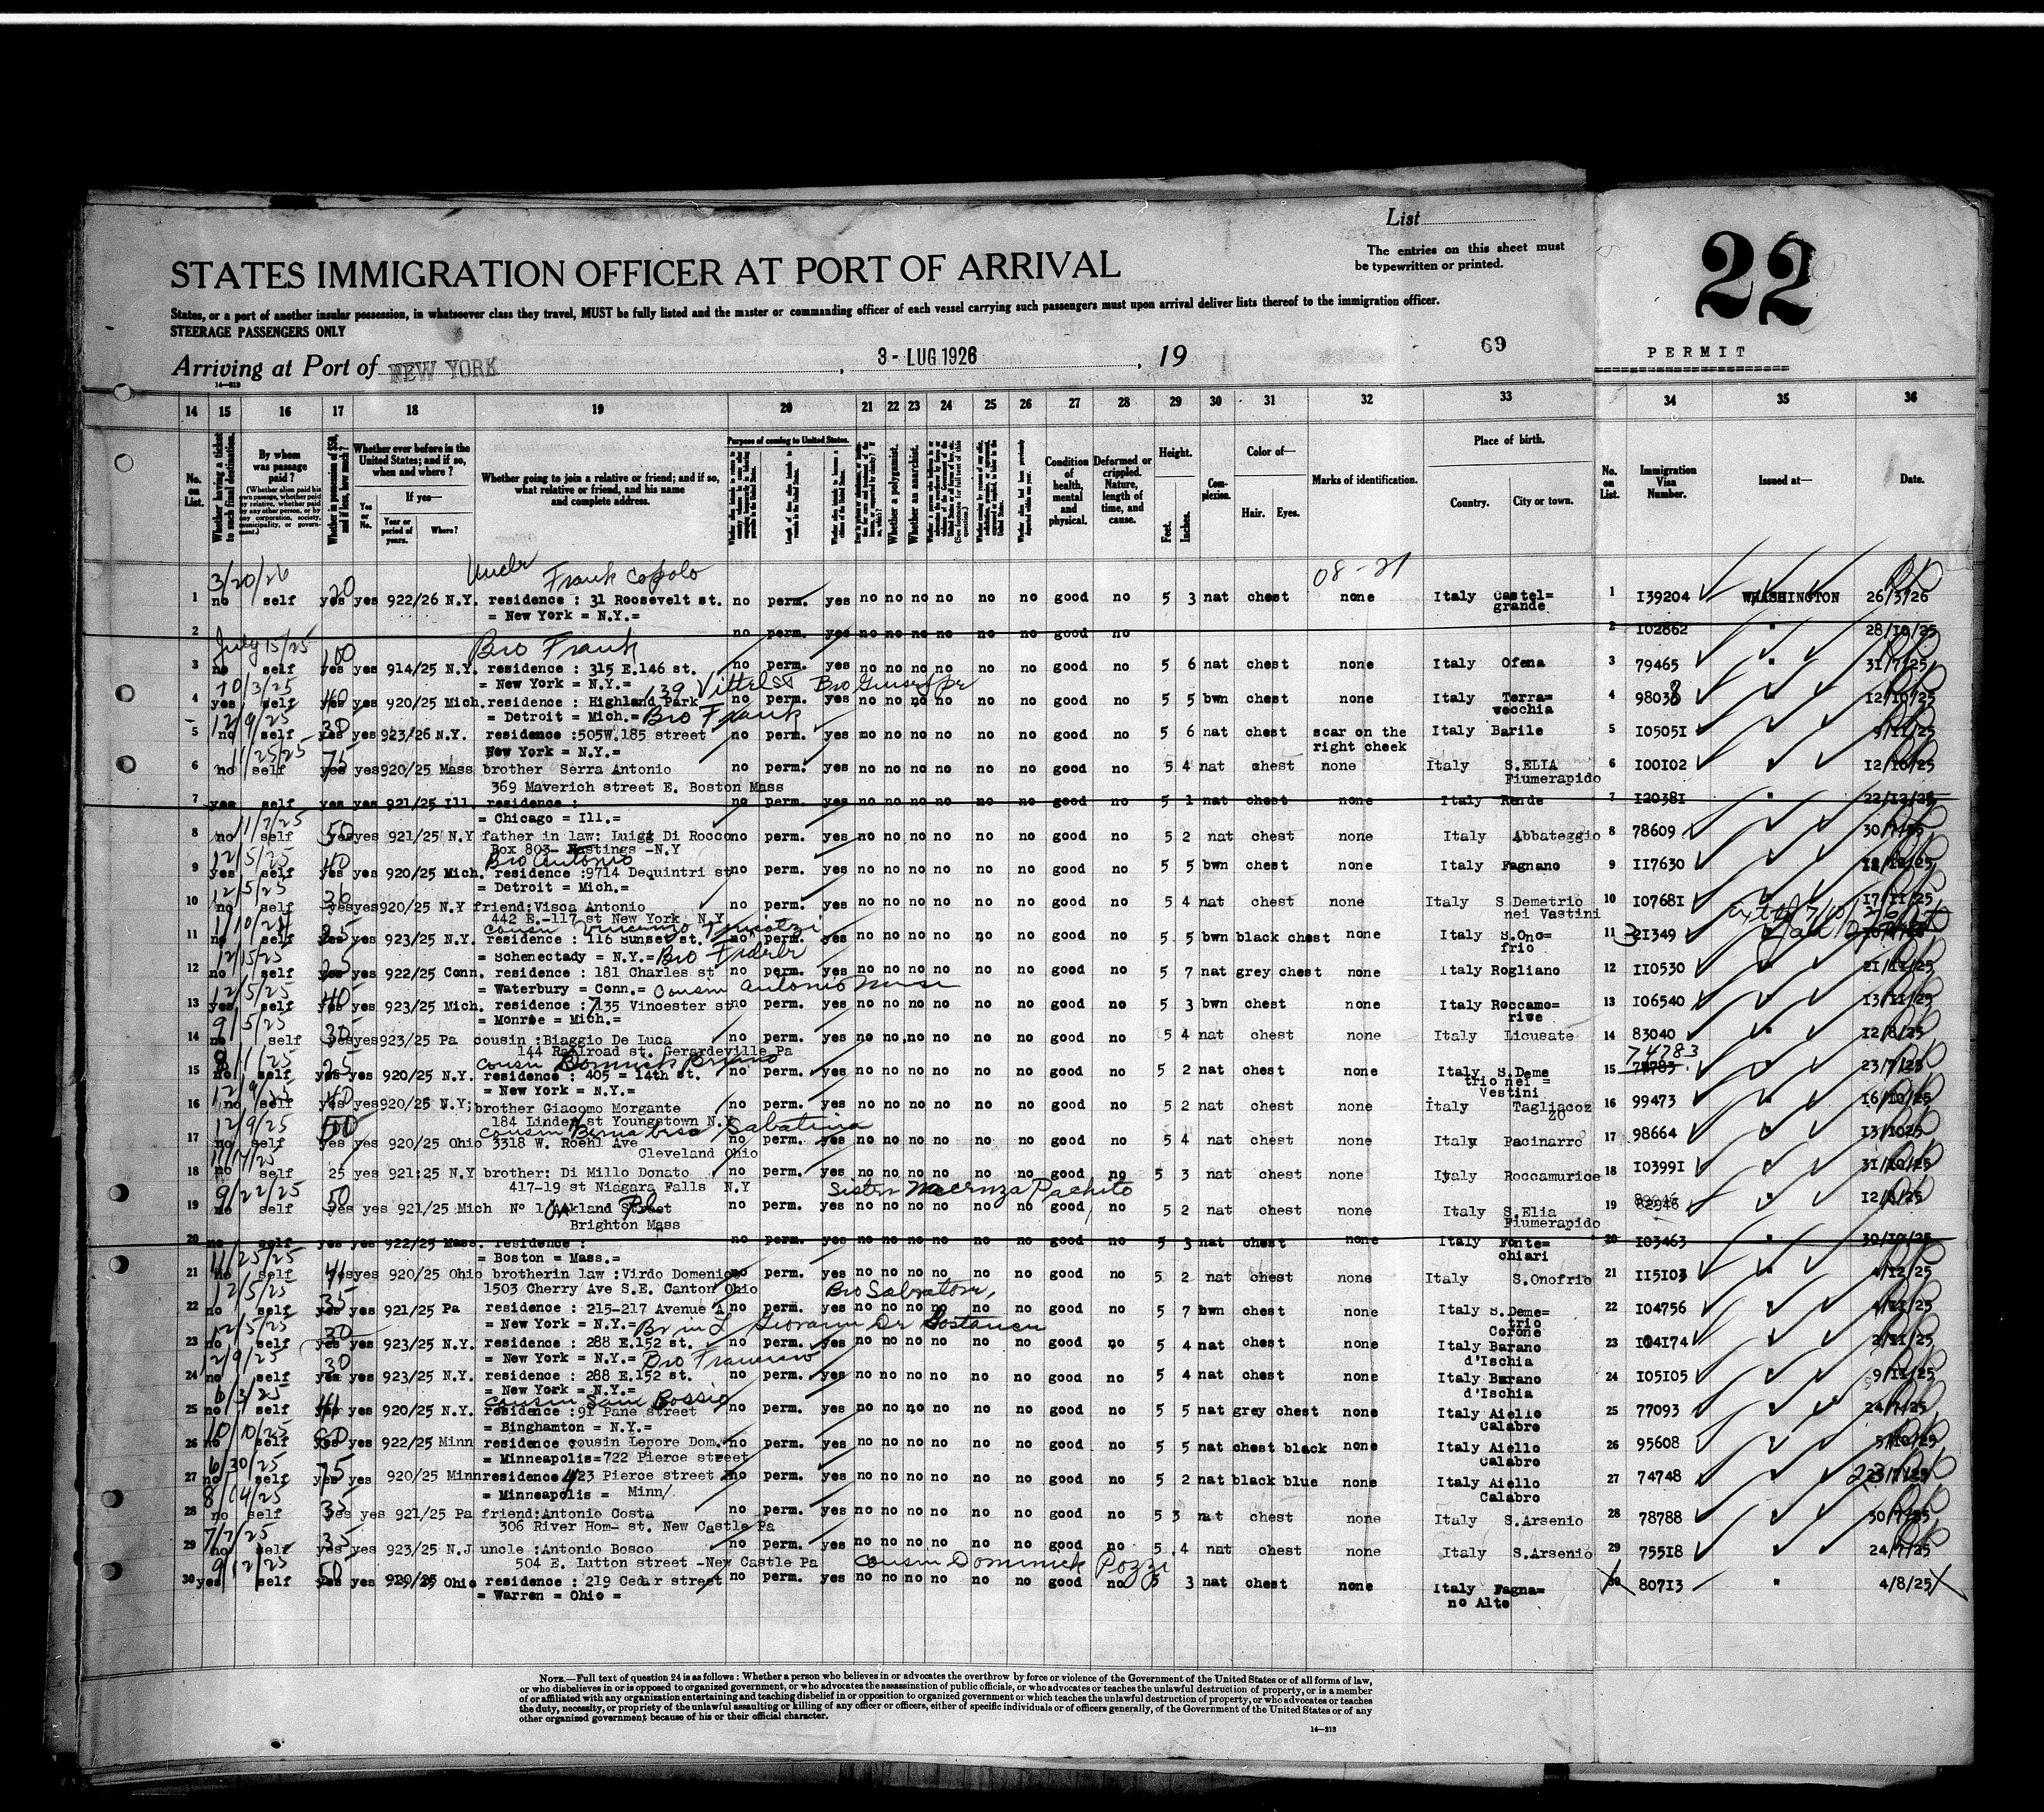 List
The entries on this sheet must
be typewritten or printed.
22
STATES IMMIGRATION OFFICER AT PORT OF ARRIVAL
States, or a port of another insular possession, in whatsoever class they travel, MUST be fully listed and the master or commanding officer of each vessel carrying such passengers must upon arrival deliver lists thereof to the immigration officer.
STEERAGE PASSENGERS ONLY
Arriving at Port of NEW YORK, 3 - LUG 1926, 19
69
PERMIT
14—213
14 15 16 17 18 19 20 21 22 23 24 25 26 27 28 29 30 31 32 33 34 35 36
No. on List.
Whether having a ticket to such final destination.
By whom was passage paid?
(Whether alien paid his own passage, whether paid by relative, whether paid by any other person, or by any corporation, society, municipality, or government.)
Whether in possession of $50, and if less, how much?
Whether ever before in the United States; and if so, when and where?
Yes or No.
If yes—
Year or period of years.
Where?
Whether going to join a relative or friend; and if so, what relative or friend, and his name and complete address.
Purpose of coming to United States.
Whether a polygamist.
Whether an anarchist.
Condition of health, mental and physical.
Deformed or crippled. Nature, length of time, and cause.
Height.
Feet. Inches.
Complexion.
Color of—
Hair. Eyes.
Marks of identification.
Place of birth.
Country. City or town.
No. on List.
Immigration Visa Number.
Issued at—
Date.
3/20/26 20 Uncle Frank Copolo 08-21
1 no self yes yes 922/26 N.Y. residence : 31 Roosevelt st. no perm. yes no no no no no no good 5 3 nat chest none Italy Castel= 1 I39204 WASHINGTON 26/3/26
= New York = N.Y.= grande
2 no perm. yes no no no no no no good no 2 I02862 " 28/10/25
July 15/25 100 Bro Frank
3 no self yes yes 914/25 N.Y. residence : 315 E.146 st. no perm. yes no no no no no no good no 5 6 nat chest none Italy Ofena 3 79465 " 31/7/25
= New York = N.Y.=
10/3/25 139 Bro Giuseppe
4 yes self yes yes 920/25 Mich. residence : Highland Park no perm. yes no no no no no no good no 5 5 bwn chest none Italy Terra= 4 98038 " 12/10/25
= Detroit = Mich.= Bro Frank vecchia
12/9/25 30
5 no self yes yes 923/26 N.Y. residence :505W.185 street no perm. yes no no no no no no good no 5 6 nat chest scar on the Italy Barile 5 I0505I " 9/11/25
New York = N.Y.= right cheek
11/25/25 75
6 no self yes yes920/25 Mass brother Serra Antonio no perm. yes no no no no no no good no 5 4 nat chest none Italy S.ELIA 6 I00I02 " 12/10/25
369 Maverich street E. Boston Mass Fiumerapido
7 yes self yes yes 921/25 Ill. residence : no perm. yes no no no no no no good no 5 1 nat chest none Italy Rende 7 I2038I " 22/12/25
= Chicago = Ill.=
11/7/25 50
8 no self yesyes 921/25 N.Y father in law: Luigi Di Rocco no perm. yes no no no no no no good no 5 2 nat chest none Italy Abbateggio 8 78609 " 30/7/25
Box 803- Hastings -N.Y
12/5/25 40 Bro Antonio
9 yes self yes yes 920/25 Mich. residence :9714 Dequintri st no perm. yes no no no no no no good no 5 5 bwn chest none Italy Fagnano 9 II7630 "
= Detroit = Mich.=
12/5/25 36
10 no self yesyes920/25 N.Y friend:Visca Antonio no perm. yes no no no no no no good no 5 4 nat chest none Italy S Demetrio 10 I0768I " 17/11/25
442 E.-117 st New York N.Y nei Vastini
1/10/24 25 Cousin Vincenzo
11 no self yes yes 923/25 N.Y. residence : 116 Sunset st. no perm. yes no no no no no no good no 5 5 bwn black chest none Italy S.Ono= 11 2I349
= Schenectady = N.Y.= Bro frio
12/15/25 25
12 no self yes yes 922/25 Conn. residence : 181 Charles st no perm. yes no no no no no no good no 5 7 nat grey chest none Italy Rogliano 12 II0530 " 21/11/25
= Waterbury = Conn.= Cousin Antonio
12/5/25 40
13 yes self yes yes 923/25 Mich. residence : 7135 Vincester st no perm. yes no no no no no no good no 5 3 bwn chest none Italy Roccamo= 13 I06540 " 13/11/25
= Monroe = Mich.= rice
9/5/25 30
14 no self yesyes923/25 Pa cousin :Biaggio De Luca no perm. yes no no no no no no good no 5 4 nat chest none Italy Licusate 14 83040 " 12/8/25
144 Railroad st. Gerardeville Pa 74783
25 Cousin Dominick Bruno
15 no self yes yes 920/25 N.Y. residence : 405 = 14th st. no perm. yes no no no no no no good no 5 2 nat chest none Italy S.Deme 15 " 23/7/25
= New York = N.Y.= trio nei = Vestini
12/9/25 40
16 no self yes yes920/25 N.Y; brother Giacomo Morgante no perm. yes no no no no no no good no 5 2 nat chest none Italy Tagliacoz 16 99473 " 16/10/25
184 Linden st Youngstown N.Y zo
12/9/25 50 Cousin Sabatina
17 no self yes yes 920/25 Ohio 3318 W. Roehl Ave no perm. yes no no no no no no good no 5 4 nat chest none Italy Pacinarro 17 98664 " 13/1025
Cleveland Ohio
18 no self 25 yes 921:25 N.Y brother: Di Millo Donato no perm. yes no no no no no no good no 5 3 nat chest none Italy Roccamurice 18 I0399I " 31/10/25
417-19 st Niagara Falls N.Y
9/22/25 50 Sister Pachito
19 no self yes yes 921/25 Mich Nº 1 Oakland Street Pl no perm. yes no no no no no no good no 5 2 nat chest none Italy S.Elia 19 82946 " 12/8/25
Brighton Mass Fiumerapido
20 no self yes yes 922/25 Mass. residence : no perm. yes no no no no no no good no 5 3 nat chest none Italy Fonte= 20 I03463 " 30/10/25
= Boston = Mass.= chiari
11/25/25 41
21 no self yesyes 920/25 Ohio brotherin law :Virdo Domenico no perm. yes no no no no no no good no 5 2 nat chest none Italy S.Onofrio 21 II5I03 " 4/12/25
1503 Cherry Ave S.E. Canton Ohio
12/5/25 35 Bro Salvatore
22 no self yes yes 921/25 Pa residence : 215-217 Avenue A no perm. yes no no no no no no good no 5 7 bwn chest none Italy S.Deme= 22 I04756 " 4/11/25
= New York = N.Y.= trio Corone
12/5/25 30 Br in L Giovanni
23 no self yes yes 923/25 N.Y. residence : 288 E.152 st. no perm. yes no no no no no no good no 5 4 nat chest none Italy Barano 23 I04I74 " 2/11/25
= New York = N.Y.= d'Ischia
12/9/25 30 Bro Francesco
24 no self yes yes 923/25 N.Y. residence : 288 E.152 st. no perm. yes no no no no no no good no 5 4 nat chest none Italy Barano 24 I05I05 " 9/11/25
= New York = N.Y.= d'Ischia
6/3/25 41 Cousin Sam Bossio
25 no self yes yes 920/25 N.Y. residence :91 Pane street no perm. yes no no no no no no good no 5 5 nat grey chest none Italy Aiello 25 77093 " 24/7/25
= Binghamton = N.Y.= Calabro
10/10/25
26 no self yes yes 922/25 Minn residence cousin Lepore Dom. no perm. yes no no no no no no good no 5 5 nat chest black none Italy Aiello 26 95608 " 5/10/25
= Minneapolis=722 Pierce street Calabro
6/30/25 75
27 no self yes yes 920/25 Minn residence 423 Pierce street no perm. yes no no no no no no good no 5 2 nat black blue none Italy Aiello 27 74748 " 23/7/25
= Minneapolis = Minn/ Calabro
8/14/25 35
28 no self yes yes 921/25 Pa friend:Antonio Costa no perm. yes no no no no no no good no 5 3 nat chest none Italy S.Arsenio 28 78788 " 30/7/25
306 River Hom- st. New Castle Pa
7/7/25 35
29 no self yes yes 923/25 N.J uncle :Antonio Bosco no perm. yes no no no no no no good no 5 4 nat chest none Italy S.Arsenio 29 755I8 " 24/7/25
504 E. Lutton street -New Castle Pa Cousin Dominick Pozzi
9/12/25 50
30 yes self yes yes 920/25 Ohio residence : 219 Cedar street no perm. yes no no no no no no good no 5 3 nat chest none Italy Fagna= 30 807I3 " 4/8/25
= Warren = Ohio = no Alto
NOTE.—Full text of question 24 is as follows: Whether a person who believes in or advocates the overthrow by force or violence of the Government of the United States or of all forms of law,
or who disbelieves in or is opposed to organized government, or who advocates the assassination of public officials, or who advocates or teaches the unlawful destruction of property, or is a member
of or affiliated with any organization entertaining and teaching disbelief in or opposition to organized government or which teaches the unlawful destruction of property, or who advocates or teaches
the duty, necessity, or propriety of the unlawful assaulting or killing of any officer or officers, either of specific individuals or of officers generally, of the Government of the United States or of any
other organized government because of his or their official character.
14—213